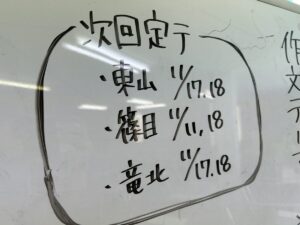 次回定テ
・東山 11/17,18
・篠目 11/11,18
・竜北 11/17,18
作文テーマ